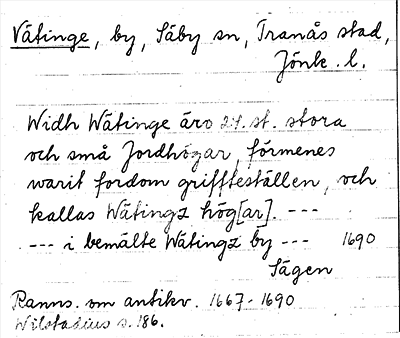 Vätinge, by, Säby sn, Tranås stad,
Jönk. l.
Widh Wätinge äro 27. st. stora
och små Jordhögar, förmenes
warit fordom griffteställen, och
kallas Wätingz hög[ar]. ---
--- i bemälte Wätingz by --- 1690
Sägen
Ranns. om antikv. 1667-1690
Wilstadius s. 186.